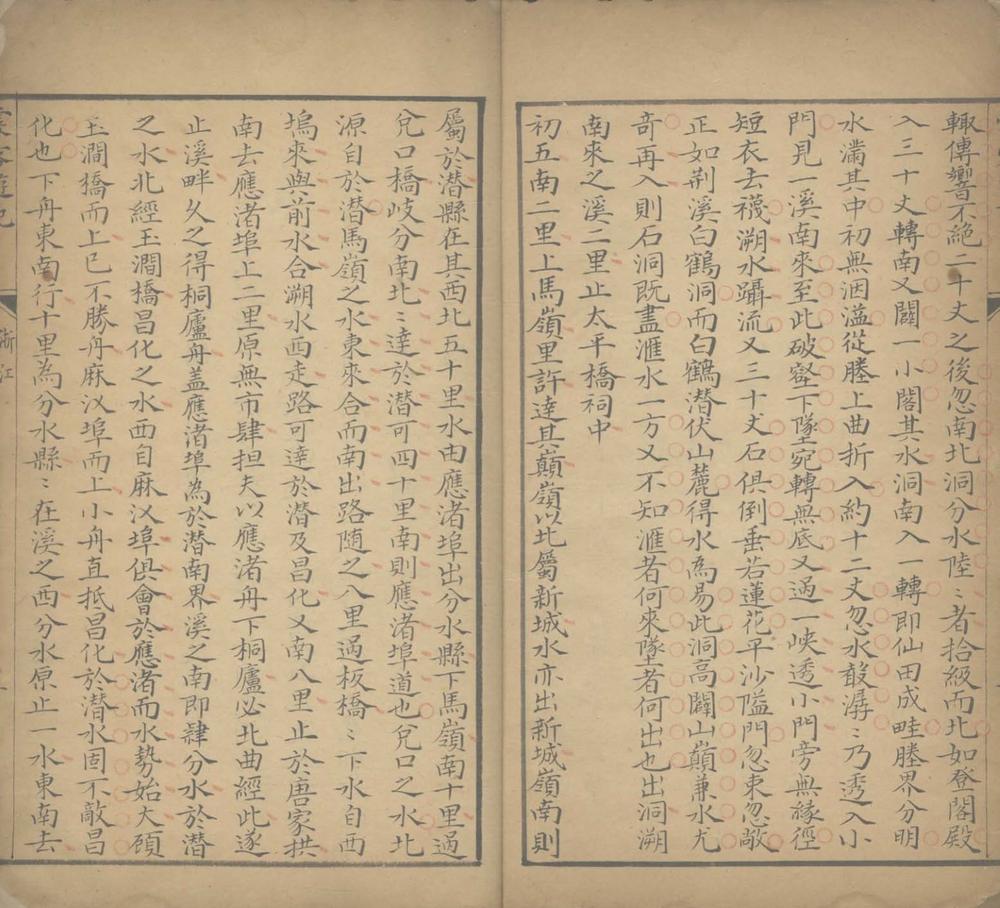 輙傳響不絕二十丈之後忽南北洞分水陸〻者拾級而北如登閣殿
入三十丈轉南又闢一小閣其水洞南入一轉即仙田成畦塍界分明
水滿其中初無洇溢從塍上曲折入約十二丈忽水敲潺〻乃透入小
門見一溪南來至此破壑下墜宛轉無底又過一峽透小門旁無緣徑
短衣去襪溯水躡流又三十丈石俱倒垂若蓮花平沙隘門忽束忽敞
正如荆溪白鶴洞而白鶴潜伏山麓得水為易此洞高闢山巔兼水尤
奇再入則石洞既盡滙水一方又不知滙者何來墜者何出也出洞溯
南來之溪二里止太平橋祠中
初五南二里上馬嶺里許達其巔嶺以北屬新城水亦出新城嶺南則
屬於潜縣在其西北五十里水由應渚埠出分水縣下馬嶺南十里過
兊口橋岐分南北〻達於潜可四十里南則應渚埠道也兊口之水北
源自於潜馬嶺之水東來合而南出路随之八里過板橋〻下水自西
塢來與前水合溯水西走路可達於潜及昌化又南八里止於唐家拱
南去應渚埠上二里原無市肆担夫以應渚舟下桐廬必北曲經此遂
止溪畔久之得桐廬舟盖應渚埠為於潜南界溪之南即肆分水於潜
之水北經玉澗橋昌化之水西自麻汊埠俱會於應渚而水勢始大碩
玉澗橋而上已不勝舟麻汊埠而上小舟直抵昌化於潜水固不敵昌
化也下舟東南行十里為分水縣〻在溪之西分水原止一水東南去
浙江